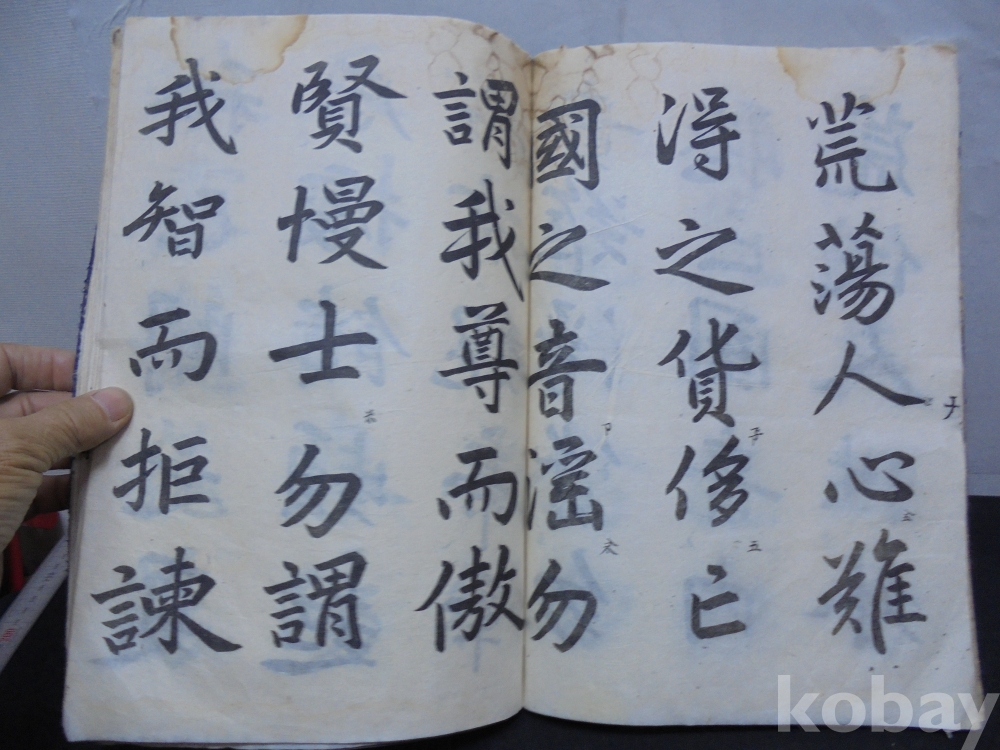 荒蕩人心難
得之貨侈亡
國之音滛勿
謂我尊而傲
賢慢士勿謂
我智而拒諫
kobay